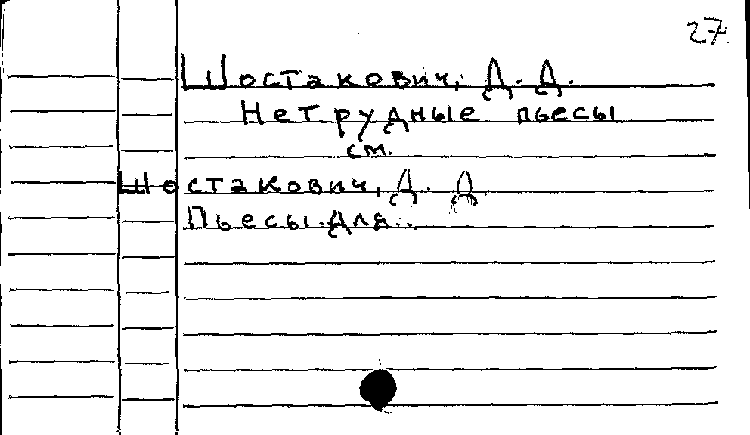 27
Шостакович, Д. Д.
Нетрудные пьесы
см.
Шостакович, Д. Д
Пьесы для...